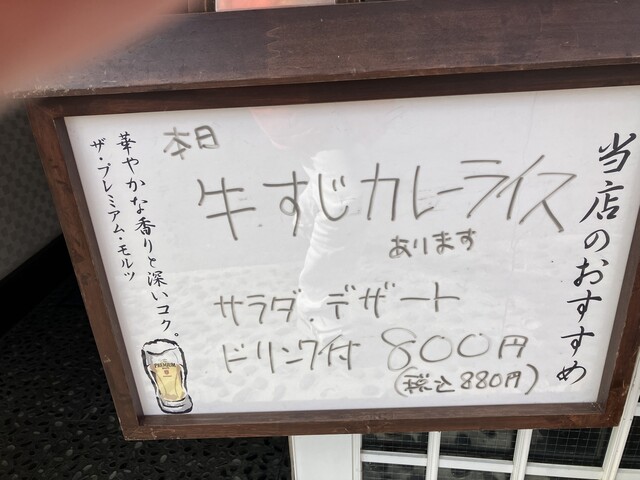 当店のおすすめ
本日
牛すじカレーライス
あります
サラダ.デザート
ドリンク付 800円
(税込880円)
華やかな香りと深いコク。
ザ・プレミアム・モルツ
PREMIUM